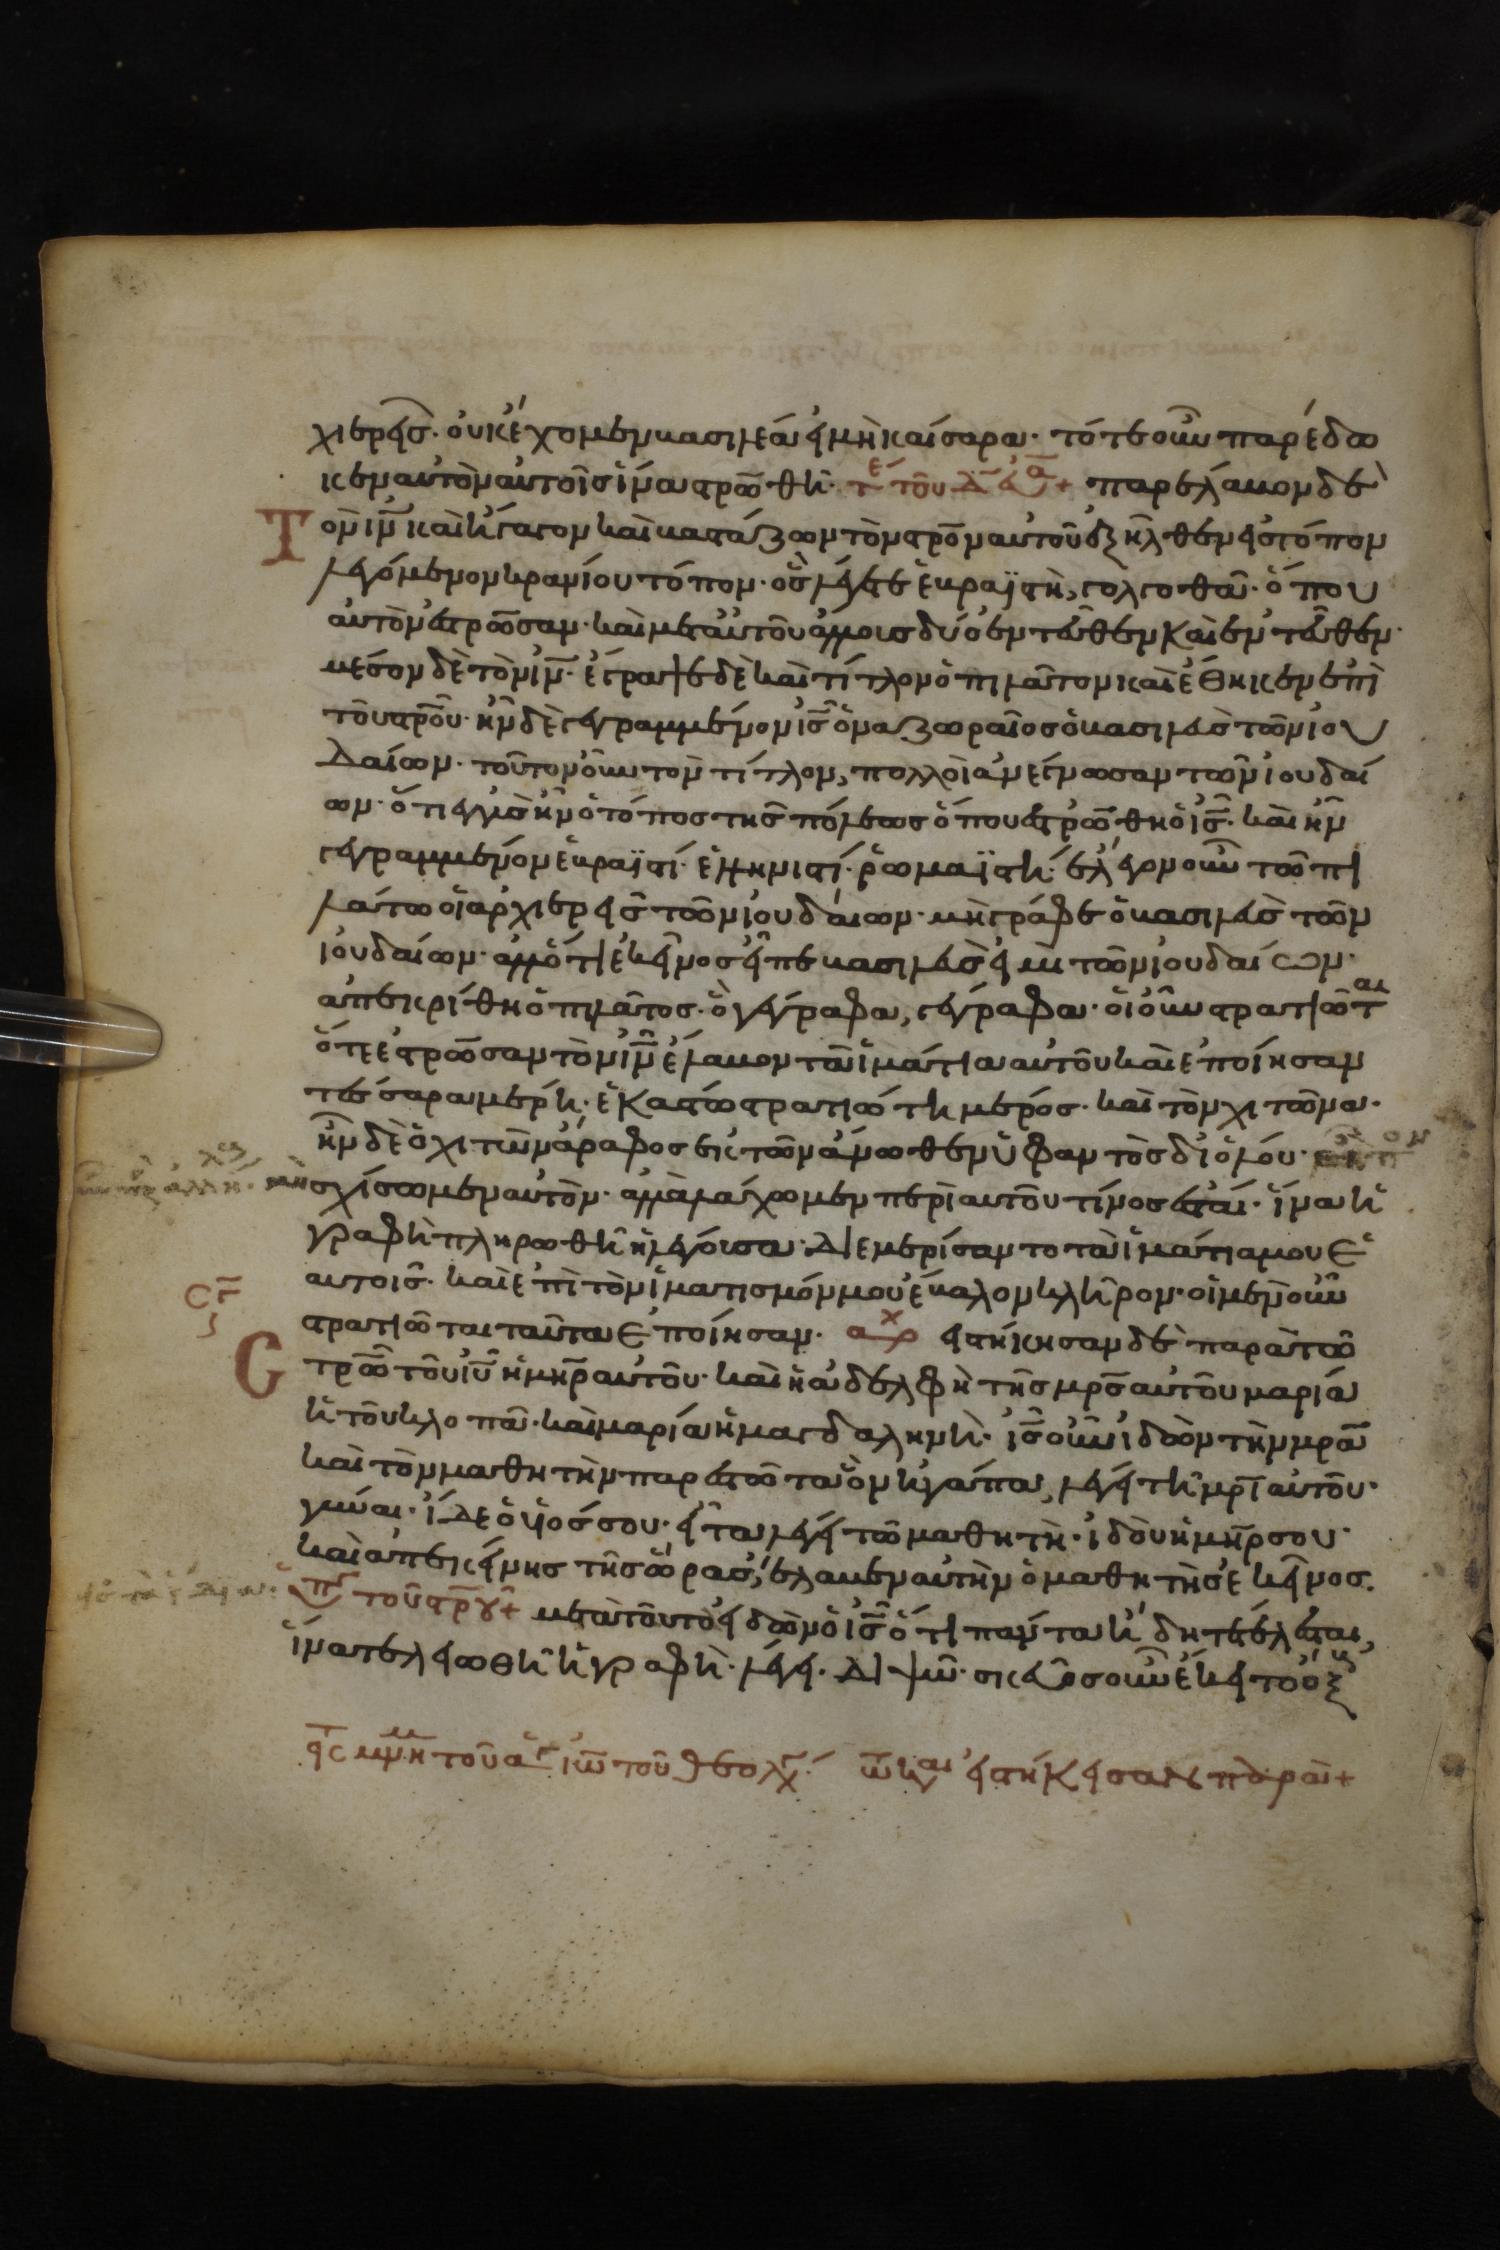 χιερεῖς· οὐκ ἔχομεν βασιλέα εἰ μὴ καίσαρα· τότε οὖν παρέδω
κεν αὐτὸν αὐτοῖς ἵνα στρωθῆ· τε τοῦ + παρέλαβον δὲ
Τὸν ιν καὶ ἤγαγον καὶ βαστάζων τὸν στρον αὐτοῦ ἐξῆλθεν εἰς τόπον
λεγόμενον κρανίου τόπον· ὃς λέγεται ἑβραϊστὶ, γολγοθᾶ· ὅπου
αὐτὸν ἐστρωσαν· καὶ μετ αὐτοῦ ἄλλους δύο ἐντεῦθεν καὶ ἐντεῦθεν·
μέσον δὲ τὸν ιν· ἔγραψε δὲ καὶ τίτλον ὁ πιλᾶτος καὶ ἔθηκεν ἐπὶ
τοῦ στρου· ἦν δὲ γεγραμμένον ις ὁ ναζωραῖος ὁ βασιλεὺς τῶν ιου
δαίων· τοῦτον οὖν τὸν τίτλον, πολλοὶ ἀνέγνωσαν τῶν ἰουδαί
ων· ὅτι ἐγγὺς ἦν ὁ τόπος τῆς πόλεως ὅπου ἐστρωθη ὁ ις· καὶ ἦν
γεγραμμένον ἑβραϊστί· ἑλληνιστί· ῥωμαϊστί· ἔλεγον οὖν τῶ πι
λάτω οἱ ἀρχιερεῖς τῶν ἰουδαίων· μὴ γράφε ὁ βασιλεὺς τῶν
ἰουδαίων· ἀλλ ὅτι ἐκεῖνος εἶπε βασιλεύς εἰμι τῶν ἰουδαίων·
ἀπεκρίθη ὁ πιλᾶτος· ὃ γέγραφα, γέγραφα· οἱ οὖν στρατιῶται
ὅτε ἐστρωσαν τὸν ιν ἔλαβον τὰ ἱμάτια αὐτοῦ καὶ ἐποίησαν
τέσσαρα μέρη· ἑκάστω στρατιώτη μέρος· καὶ τὸν χιτῶνα·
ἦν δὲ ὁ χιτὼν ἄραφος ἐκ τῶν ἄνωθεν ὑφαντὸς δι ὅλου·
σχίσωμεν αὐτὸν· ἀλλὰ λάχωμεν περὶ αὐτοῦ τίνος ἔσται· ἵνα ἡ
γραφὴ πληρωθῆ ἡ λέγουσα· Διεμερίσαντο τὰ ἱμάτιά μου ἑ
αυτοῖς· καὶ ἐπὶ τὸν ἱματισμόν μου ἔβαλον κλῆρον· οἱ μὲν οὖν
στρατιῶται ταῦτα ἐποίησαν· αρχ εἱστήκησαν δὲ παρὰ τῶ
στρω τοῦ ιυ ἡ μηρ αὐτοῦ· καὶ ἡ ἀδελφὴ τῆς μρς αὐτοῦ μαρία
ἡ τοῦ κλοπᾶ· καὶ μαρία ἡ μαγδαληνὴ· ις οὖν ἰδὼν τὴν μρα
καὶ τὸν μαθητὴν παρεστῶτα ὃν ἠγάπα, λέγει τῆ μρι αὐτοῦ·
γύναι· ἴδε ὁ υἱός σου· εἶτα λέγει τῶ μαθητῆ· ἰδοὺ ἡ μηρ σου·
καὶ ἀπ ἐκείνης τῆς ὥρας, ἔλαβεν αὐτὴν ὁ μαθητὴς ἐκεῖνος.
τοῦ στρου + μετὰ τοῦτο εἰδὼν ὁ ις ὅτι πάντα ἤδη τετέλεσται,
ἵνα τελειωθῆ ἡ γραφὴ· λέγει· Διψῶ· σκεῦος οὖν ἔκειτο ὄξ
εἰς μνμην τοῦ αγ ιω τοῦ θεολγ· τω και εἱστήκεισαν παρὰ +